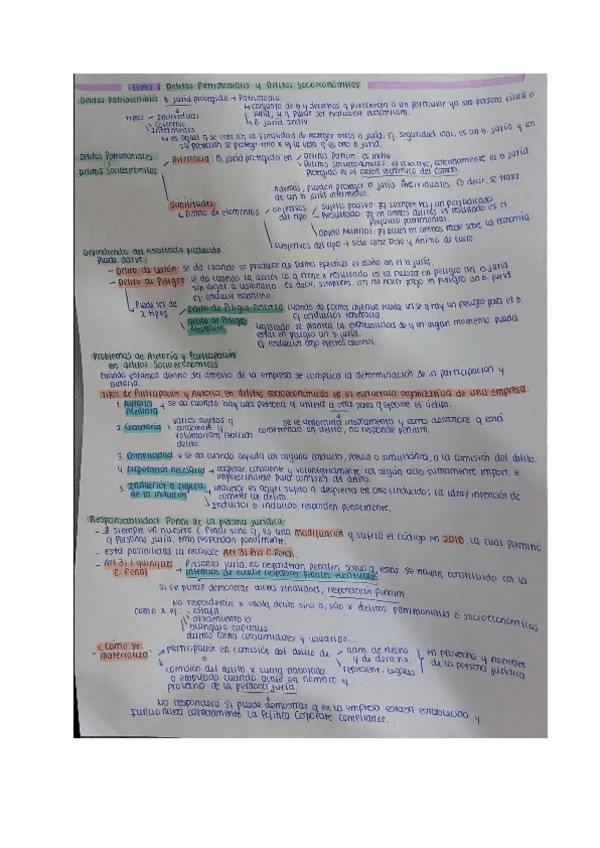 Tema 1. Delitos Patrimoniales y Delitos Socioeconómicos
Delitos Patrimoniales: b. jurid protegido → Patrimonio
conjunto de b y derechos q pertenecen a un particular ya sea persona física o
jurid, y q puede ser evaluable económicam.
B. jurid indiv.
Tipos - Individuas
Colectivo
Intermedio
es aquel q se crea con la finalidad de proteger otros b. jurid. Ej. seguridad vial, es un b. jurid y con
su protección se protege tmb x ej la vida q es otro b. jurid.
Delitos Patrimoniales
Delitos Socioeconómicos
Diferencia: B. jurid protegido en
Delitos Patrim: es indiv
Delitos Socioeconómicos: es colectivo, concretamente el b jurid
protegido es el orden económico del Estado.
además, pueden proteger b. jurid individuales. Es decir, se trata
de un b jurid intermedio.
Similitudes
Dentro de elementos
objetivos del tipo
Sujeto pasivo: en siempre hay un perjudicado
Resultado: en ambos delitos el resultado es el
perjuicio patrimonial.
Objeto Material: pueden en ambos recaer sobre la economía.
subjetivos del tipo → solo cabe Dolo y Ánimo de lucro
Dependiendo del resultado producido
Puede darse:
- Delito de Lesión: se da cuando se produce de forma efectiva el daño en el b. jurid.
- Delito de Peligro: se da cuando la acción lo q tiene x resultado es la puesta en peligro del b. jurid
sin llegar a lesionarlo. Es decir, simplem. con mi hacer pongo en peligro un b. jurid.
Ej. conducir borracho.
Puede ser de
2 tipos
Delito de Peligro Concreto: cuando de forma objetiva puede verse q hay un peligro para el b.
Ej. conducción temeraria
Delito de Peligro
Abstracto
legislador se plantea la eventualidad de q en algún momento pueda
estar en peligro un b. jurid.
Ej. conducción bajo efectos alcohol.
Problemas de Autoría y Participación
en delitos Socioeconómicos
Cuando estamos dentro del ámbito de la empresa se complica la determinación de la participación y
autoría.
Tipos de Participación y Autoría en delitos socioeconómicos en la estructura organizativa de una empresa:
1. Autoría
Mediata
→ se da cuando hay una persona q utiliza a otra para q ejecute el delito.
se le denomina instrumento y como desconoce q está
cometiendo un delito, no responde penalm.
2. Coautoría
varios sujetos q
consciente y
voluntariam realizan
delito.
3. Complicidad → se da cuando ayuda con alguna conducta, previa o simultánea, a la comisión del delito.
4. Cooperación necesaria → cooperar consciente y voluntariamente con algún acto sumamente import. e
imprescindible para comisión del delito.
5. Inducción o figura
de la inducción
inductor es aquel sujeto q despierta en otro (inducido) la idea/intención de
cometer un delito.
Inductor e inducido responden penalmente.
Responsabilidad Penal de la persona jurídica:
- siempre en nuestro C. Penal sino q es una modificación q sufrió el código en 2010, la cual permitió
q Personas jurid. tmb respondan penalmente.
- esta posibilidad la reconoce Art 31 Bis C. Penal.
- Art 31.1 quinques
C. Penal
Personas jurid. no responderán penalm, salvo q estas se hayan constituido con la
intención de eludir responsab. penales eventuales
si se puede demostrar dicha finalidad, responderán penalm
No responderán x cualq delito sino q, son x delitos patrimoniales o socioeconómicos
como x ej: - estafa
alzamiento b
blanqueo capitales
delitos contra consumidores y usuarios.
- ¿Cómo se
materializa?
participación en comisión del delito de
adm. de hecho
y de derecho.
represent. legales
en provecho y nombre
de la persona jurídica
o
comisión del delito x cualq trabajador
o empleado cuando actúe en nombre y
provecho de la persona jurid.
No responderá si puede demostrar q en la empresa estaba establecida y
funcionaba correctamente la Política Corporate Compliance.